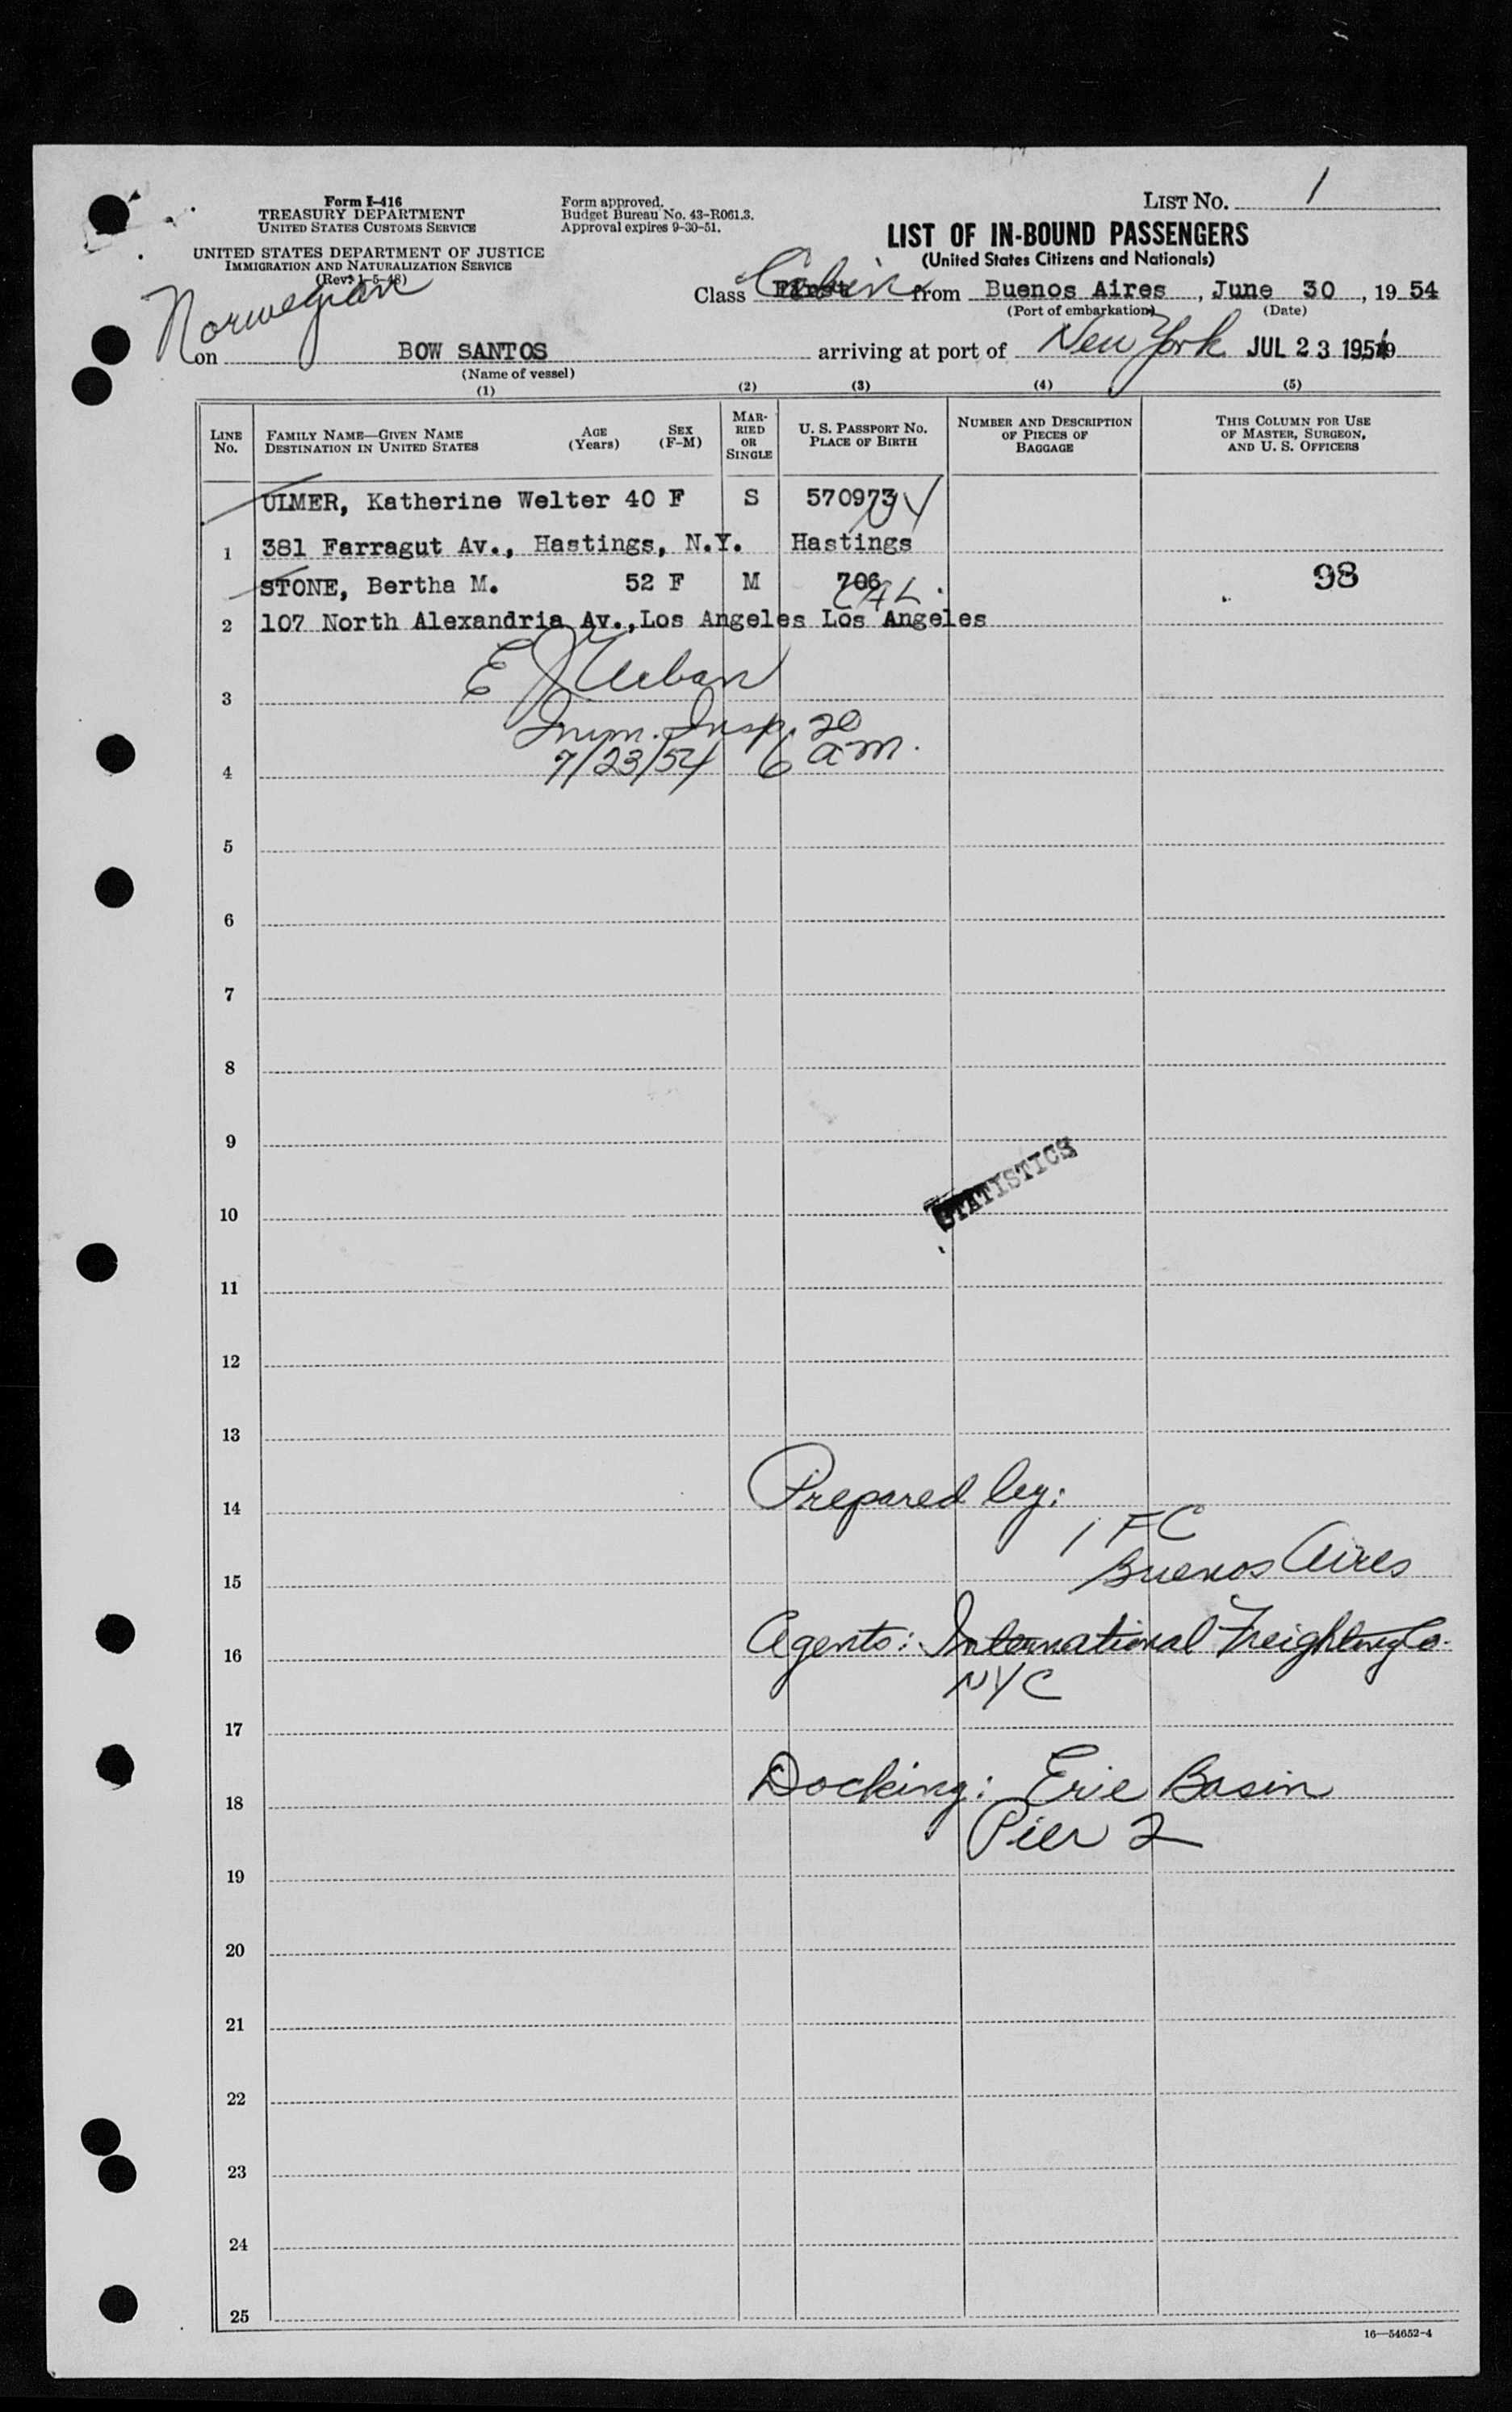 LIST NO. 1
Form I-416
TREASURY DEPARTMENT
UNITED STATES CUSTOMS SERVICE
Form approved.
Budget Bureau No. 43-R061.3.
Approval expires 9-30-51.
UNITED STATES DEPARTMENT OF JUSTICE
IMMIGRATION AND NATURALIZATION SERVICE
(Rev. 1-5-48)
LIST OF IN-BOUND PASSENGERS
(United States Citizens and Nationals)
Norwegian
Class First Cabin from Buenos Aires, June 30, 19 54
(Port of embarkation) (Date)
on BOW SANTOS arriving at port of New York JUL 23 1954 19
(Name of vessel)
(1) (2) (3) (4) (5)
LINE No. FAMILY NAME—GIVEN NAME DESTINATION IN UNITED STATES AGE (Years) SEX (F-M) MARRIED OR SINGLE U. S. PASSPORT NO. PLACE OF BIRTH NUMBER AND DESCRIPTION OF PIECES OF BAGGAGE THIS COLUMN FOR USE OF MASTER, SURGEON, AND U. S. OFFICERS
ULMER, Katherine Welter 40 F S 570973 NY
1 381 Farragut Av., Hastings, N.Y. Hastings
STONE, Bertha M. 52 F M 706 CAL. 98
2 107 North Alexandria Av.,Los Angeles Los Angeles
E J Urban
3
Imm. Insp. 20
4 7/23/54 6 am.
5
6
7
8
9
STATISTICS
10
11
12
13
14 Prepared by:
IFC
15 Buenos Aires
16 Agents: International Freighting Co.
NYC
17
18 Docking: Erie Basin
Pier 2
19
20
21
22
23
24
25
16—54652-4